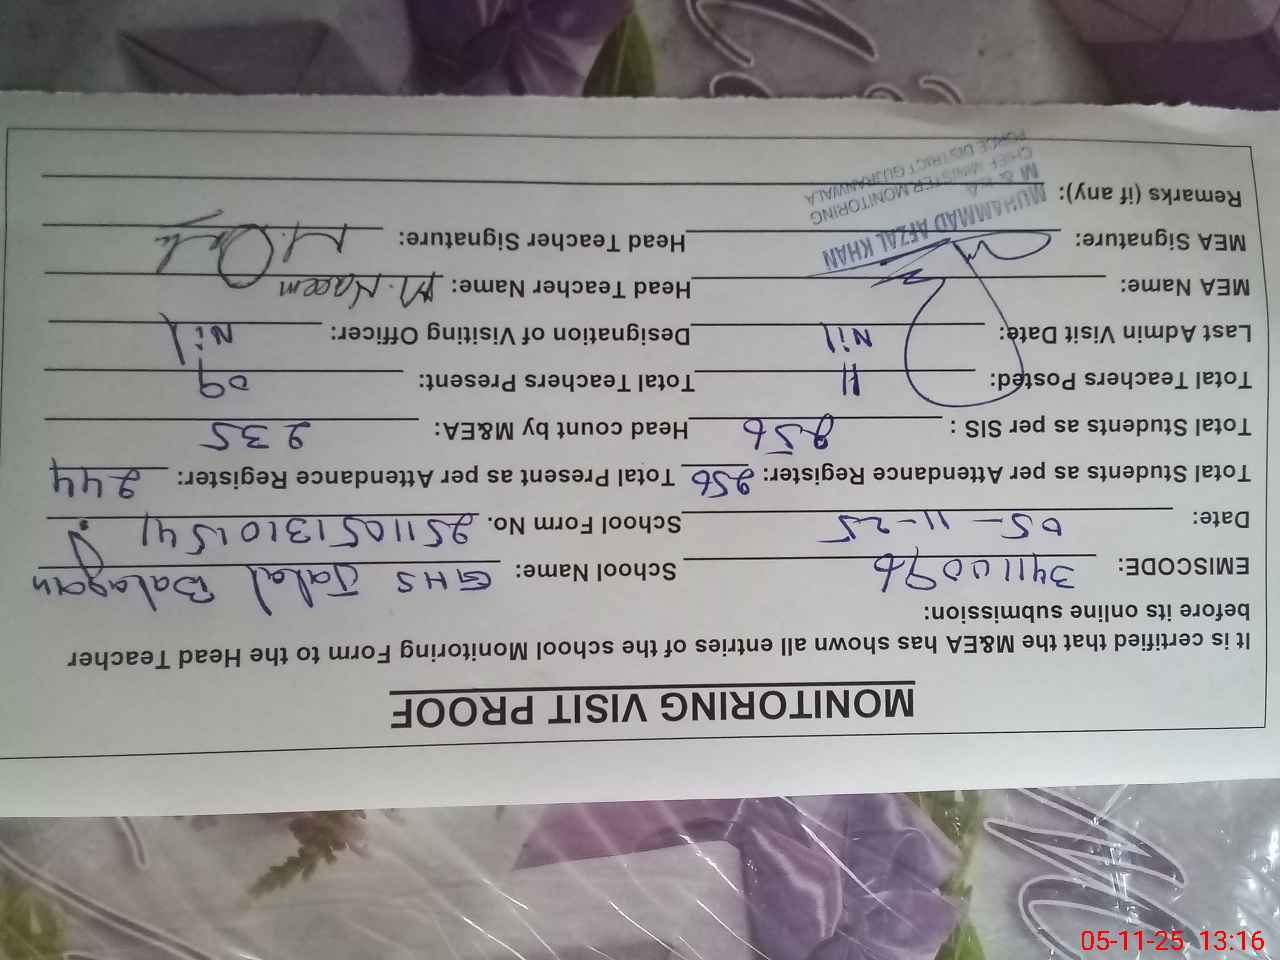 MONITORING VISIT PROOF
It is certified that the M&EA has shown all entries of the school Monitoring Form to the Head Teacher
before its online submission:
EMISCODE: 34110096 School Name: GHS Jalal Balagan
Date: 05-11-25 School Form No. 2511051310154
Total Students as per Attendance Register: 256 Total Present as per Attendance Register: 244
Total Students as per SIS : 256 Head count by M&EA: 235
Total Teachers Posted: 11 Total Teachers Present: 09
Last Admin Visit Date: Nil Designation of Visiting Officer: Nil
MEA Name: Head Teacher Name: M. Naeem
MEA Signature: Head Teacher Signature:
Remarks (if any):
MUHAMMAD AFZAL KHAN
M & E.A
CHIEF MINISTER MONITORING
FORCE DISTRICT GUJRANWALA
05-11-25 13:16